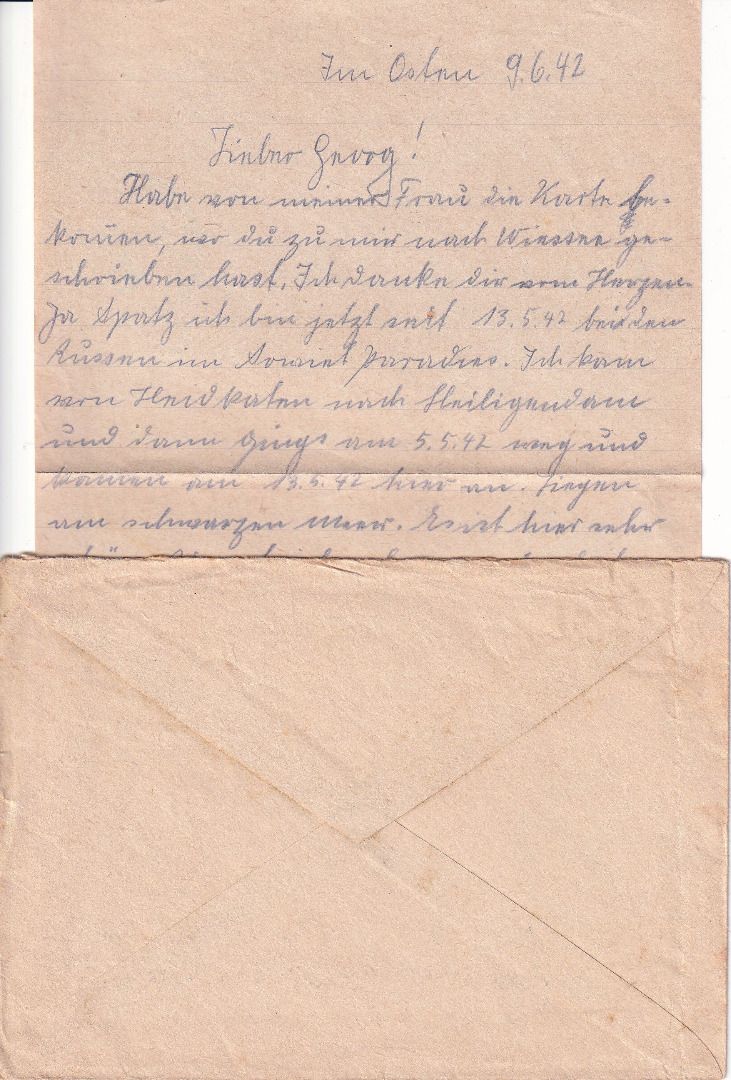 Im Osten 9.6.42
Lieber Georg!
Habe von meiner Frau die Karte be-
kom̄en, wo du zu mir nach Wiessee ge-
schrieben hast. Ich danke dir vom Herzen.
Ja Spatz ich bin jetzt seit 13.5.42 bei den
Russen im Sowiet Paradies. Ich kam
von Heidkaten nach Heiligendam
und dann gings am 5.5.42 weg und
kamen am 13.5.42 hier an. Liegen
am schwarzen Meer. Es ist hier sehr